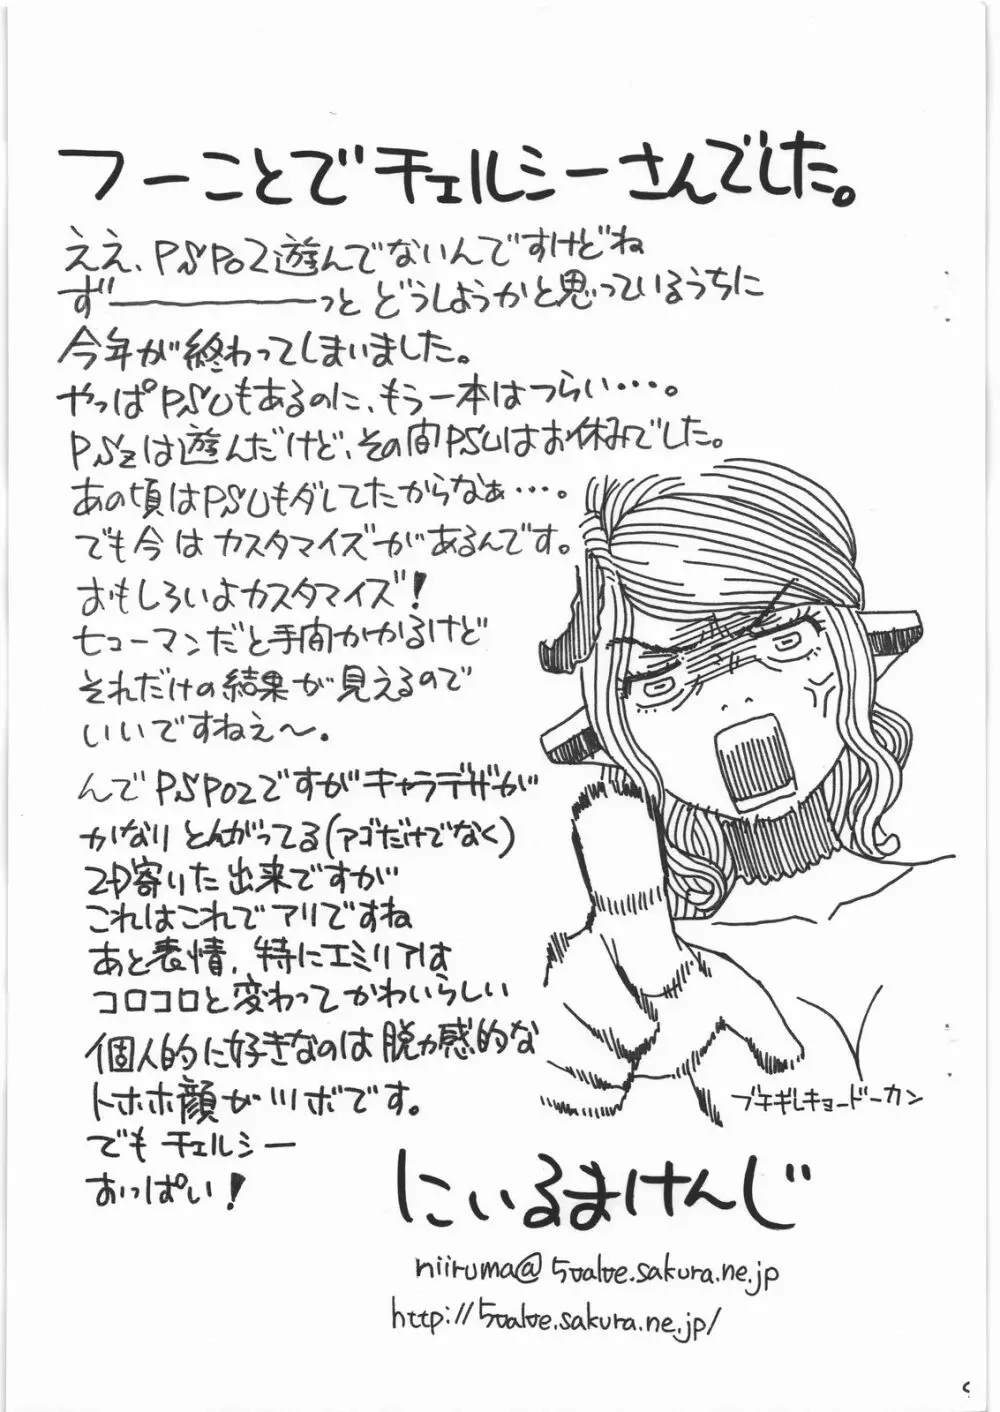 フーことでチェルシーさんでした。
ええ、PSPo2遊んでないんですけどね
ず――――――っと どうしようかと思っているうちに
今年が終わってしまいました。
やっぱPSUもあるのに、もう一本はつらい・・・。
PSZは遊んだけど、その間PSUはお休みでした。
あの頃はPSUもダレてたからなぁ・・・。
でも今はカスタマイズがあるんです。
おもしろいよカスタマイズ!
ヒューマンだと手間かかるけど
それだけの結果が見えるので
いいですねぇ～.
んでPSPo2ですがキャラデザが
かなりとんがってる(アゴだけでなく)
2D寄りた出来ですが
これはこれでアリですね
あと表情、特にエミリアは
コロコロと変わってかわいらしい
個人的に好きなのは脱力感的な
トホホ顔がツボです。
でもチェルシー
おっぱい!
ブチギレキョードーカン
にいるまけんじ
niiruma@5valve.sakura.ne.jp
http://5valve.sakura.ne.jp/